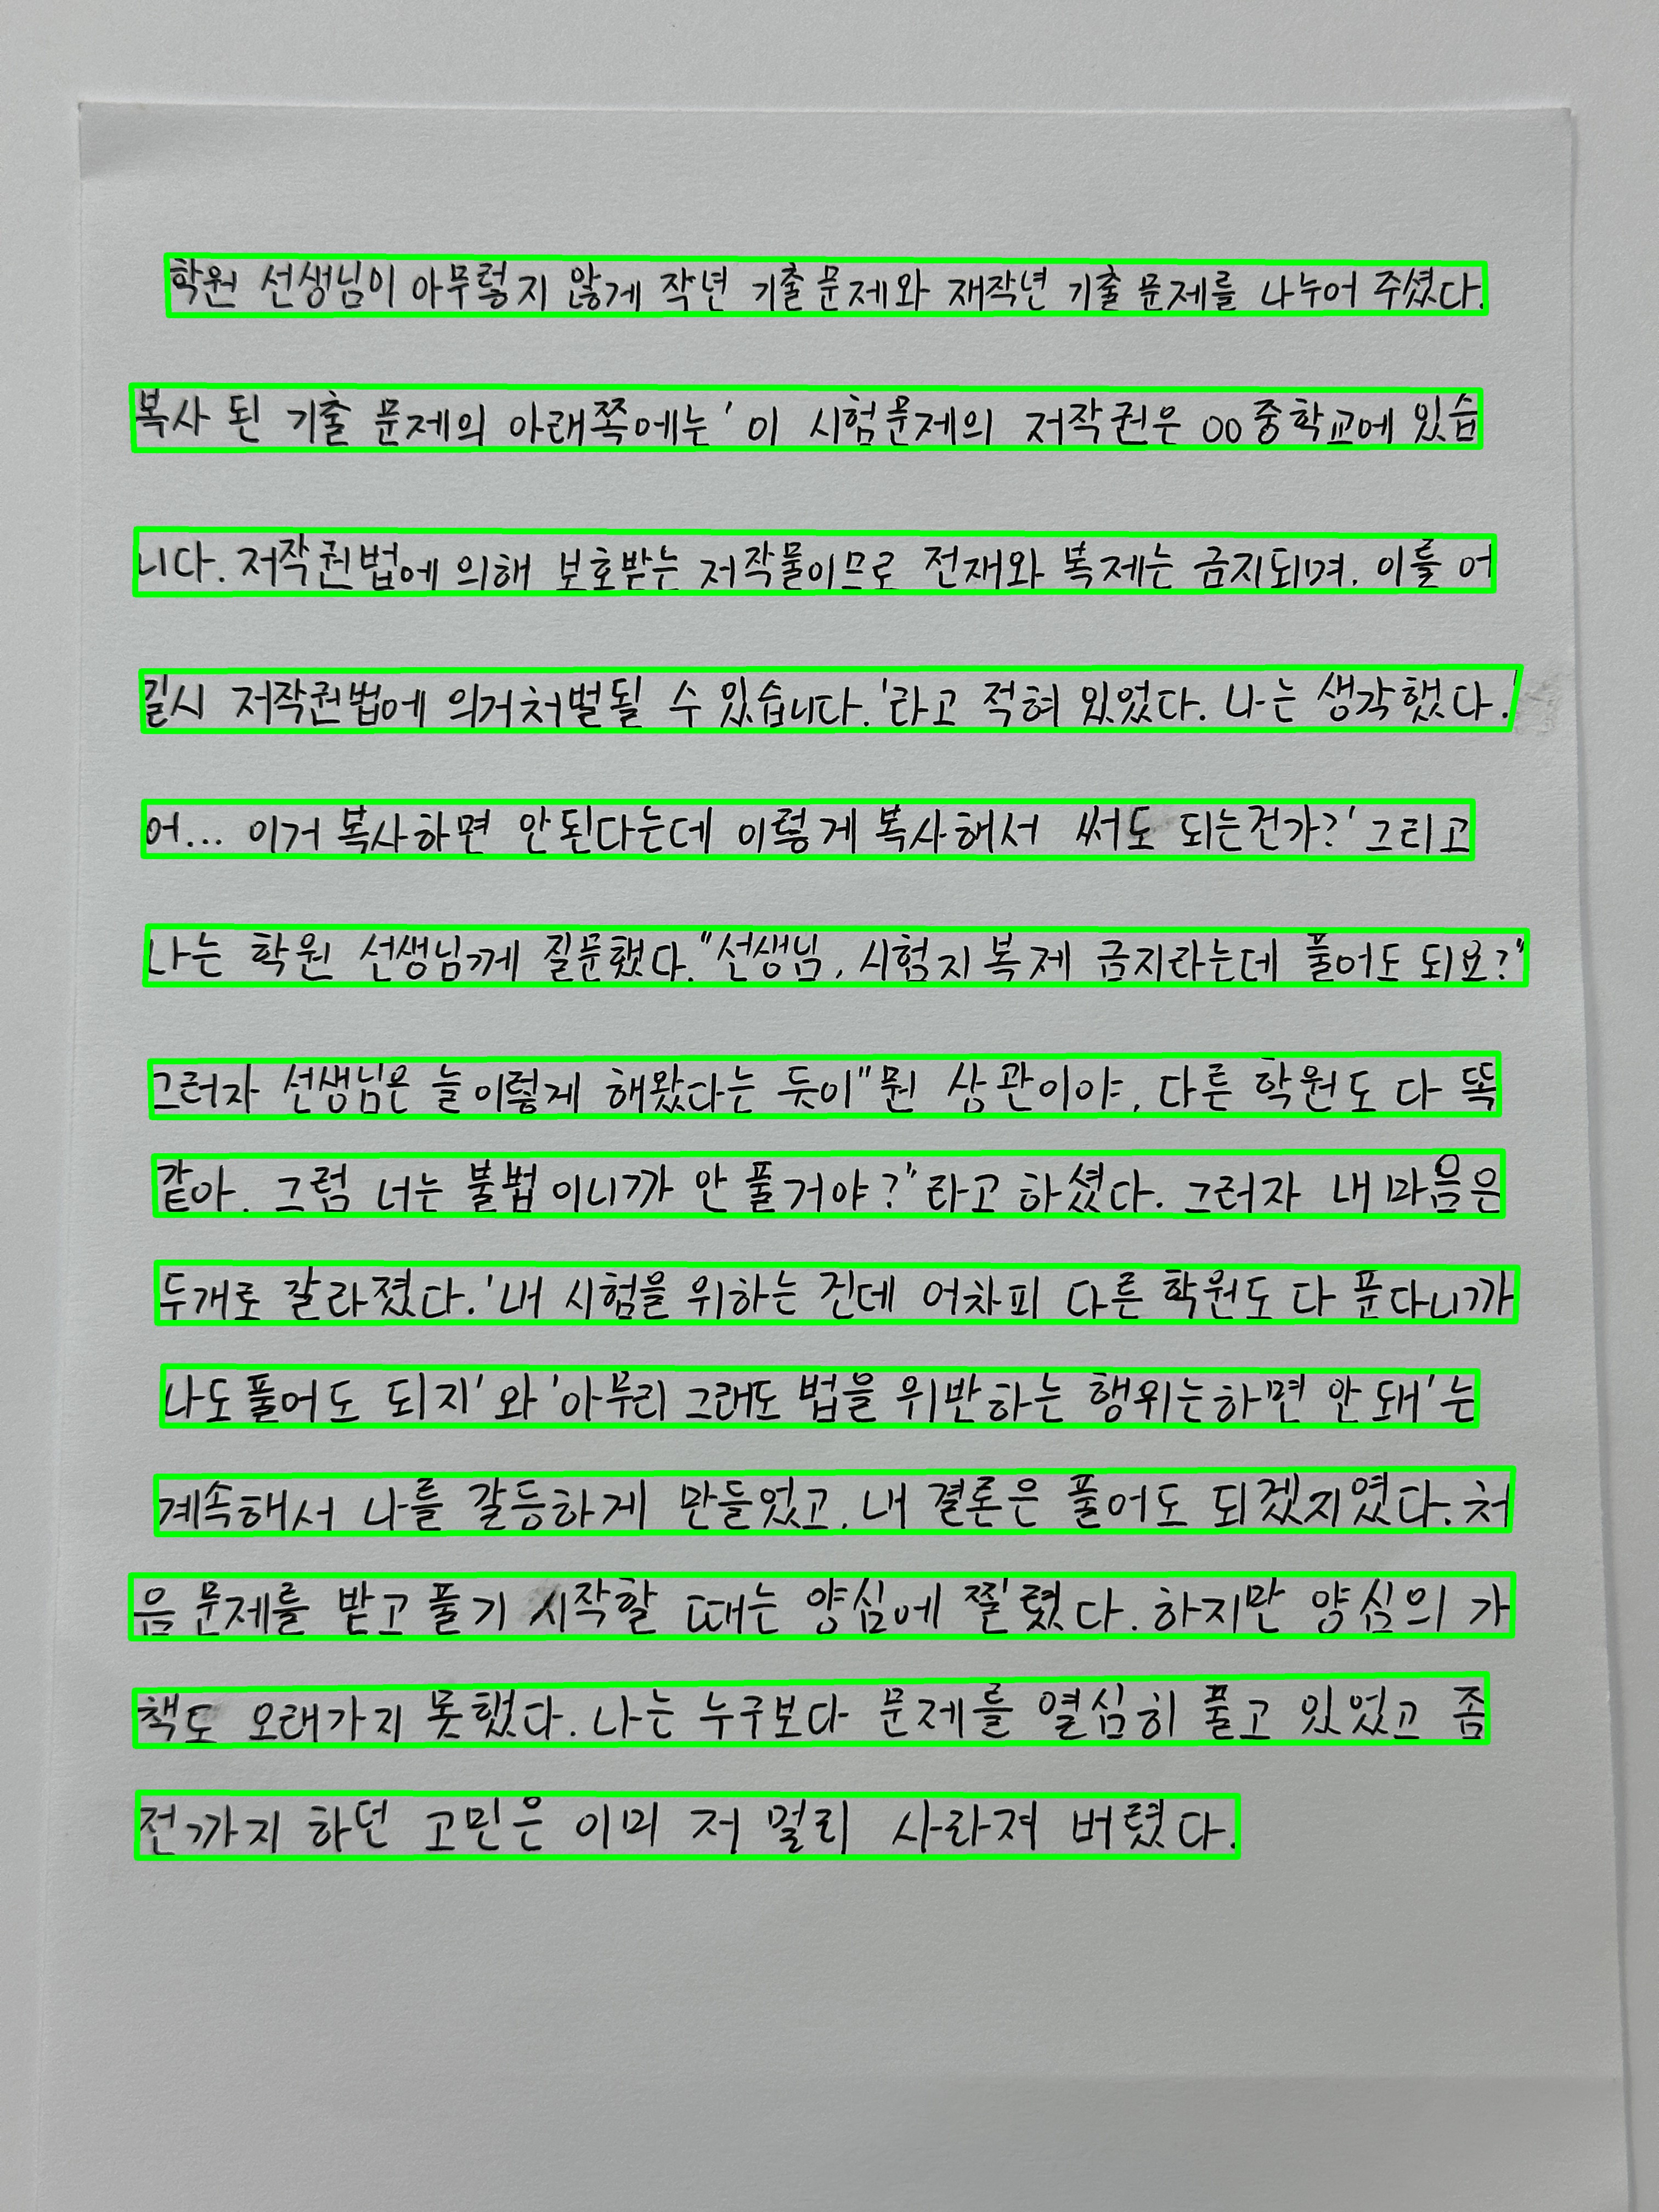 학원 선생님이 아무렇지 않게 작년 기출문제와 재작년 기출문제를 나누어 주셨다.
복사 된 기출 문제의 아래쪽에는 '이 시험문제의 저작권은 00중학교에 있습
니다. 저작권법에 의해 보호받는 저작물이므로 전재와 복제는 금지되며, 이를 어
길시 저작권법에 의거처벌될 수 있습니다.'라고 적혀 있었다. 나는 생각했다.'
어... 이거 복사하면 안된다는데 이렇게 복사해서 써도 되는건가?' 그리고
나는 학원 선생님께 질문했다. "선생님, 시험지 복제 금지라는데 풀어도 되요?"
그러자 선생님은 늘 이렇게 해왔다는 듯이 "뭔 상관이야, 다른 학원도 다 똑
같아. 그럼 너는 불법이니까 안 풀거야?"라고 하셨다. 그러자 내 마음은
두개로 갈라졌다. '내 시험을 위하는 건데 어차피 다른 학원도 다 푼다니까
나도 풀어도 되지'와 '아무리 그래도 법을 위반하는 행위는하면 안돼'는
계속해서 나를 갈등하게 만들었고, 내 결론은 풀어도 되겠지였다. 처
음 문제를 받고 풀기 시작할 때는 양심에 찔렸다. 하지만 양심의 가
책도 오래가지 못했다. 나는 누구보다 문제를 열심히 풀고 있었고 좀
전까지 하던 고민은 이미 저 멀리 사라져 버렸다.